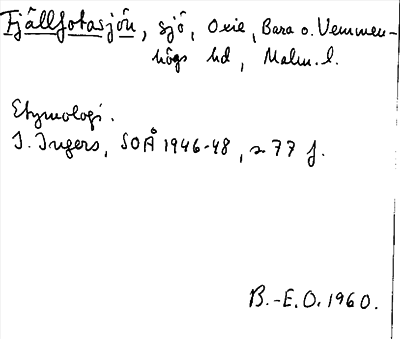 Fjällfotasjön, sjö, Oxie, Bara o. Vemmen-
högs hd, Malm. l.
Etymologi.
I. Ingers, SOÅ 1946-48, s 77 f.
B.-E.O. 1960.